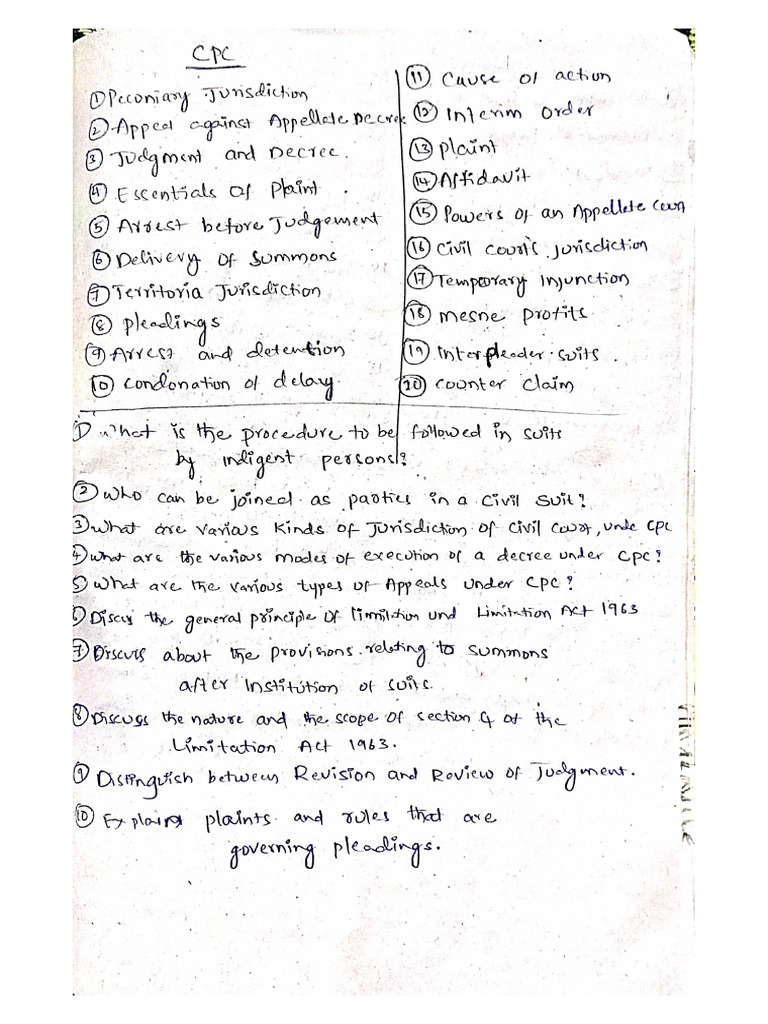 CPC
① Peconiary Jurisdiction
② Appeal against Appellate Decree
③ Judgment and Decree.
④ Essentials of Plaint.
⑤ Arrest before Judgement
⑥ Delivery of summons
⑦ Territoria Jurisdiction
⑧ pleadings
⑨ Arrest and detention
⑩ condonation of delay.
⑪ Cause of action
⑫ Interim order
⑬ plaint
⑭ Affidavit
⑮ Powers of an Appellate Court
⑯ Civil court's jurisdiction
⑰ Temporary injunction
⑱ mesne profits
⑲ Interpleader suits.
⑳ counter claim
① What is the procedure to be followed in suits
by indigent persons?
② Who can be joined as parties in a Civil Suit?
③ What are various kinds of Jurisdiction of Civil Court, unde CPC
④ What are the various modes of execution of a decree under CPC?
⑤ What are the various types of Appeals under CPC?
⑥ Discus the general principle of limitation und Limitation Act 1963
⑦ Discuss about the provisions relating to summons
after Institution of suits.
⑧ Discuss the nature and the scope of section 4 of the
Limitation Act 1963.
⑨ Distinguish between Revision and Review of Judgment.
⑩ Explain plaints and rules that are
governing pleadings.